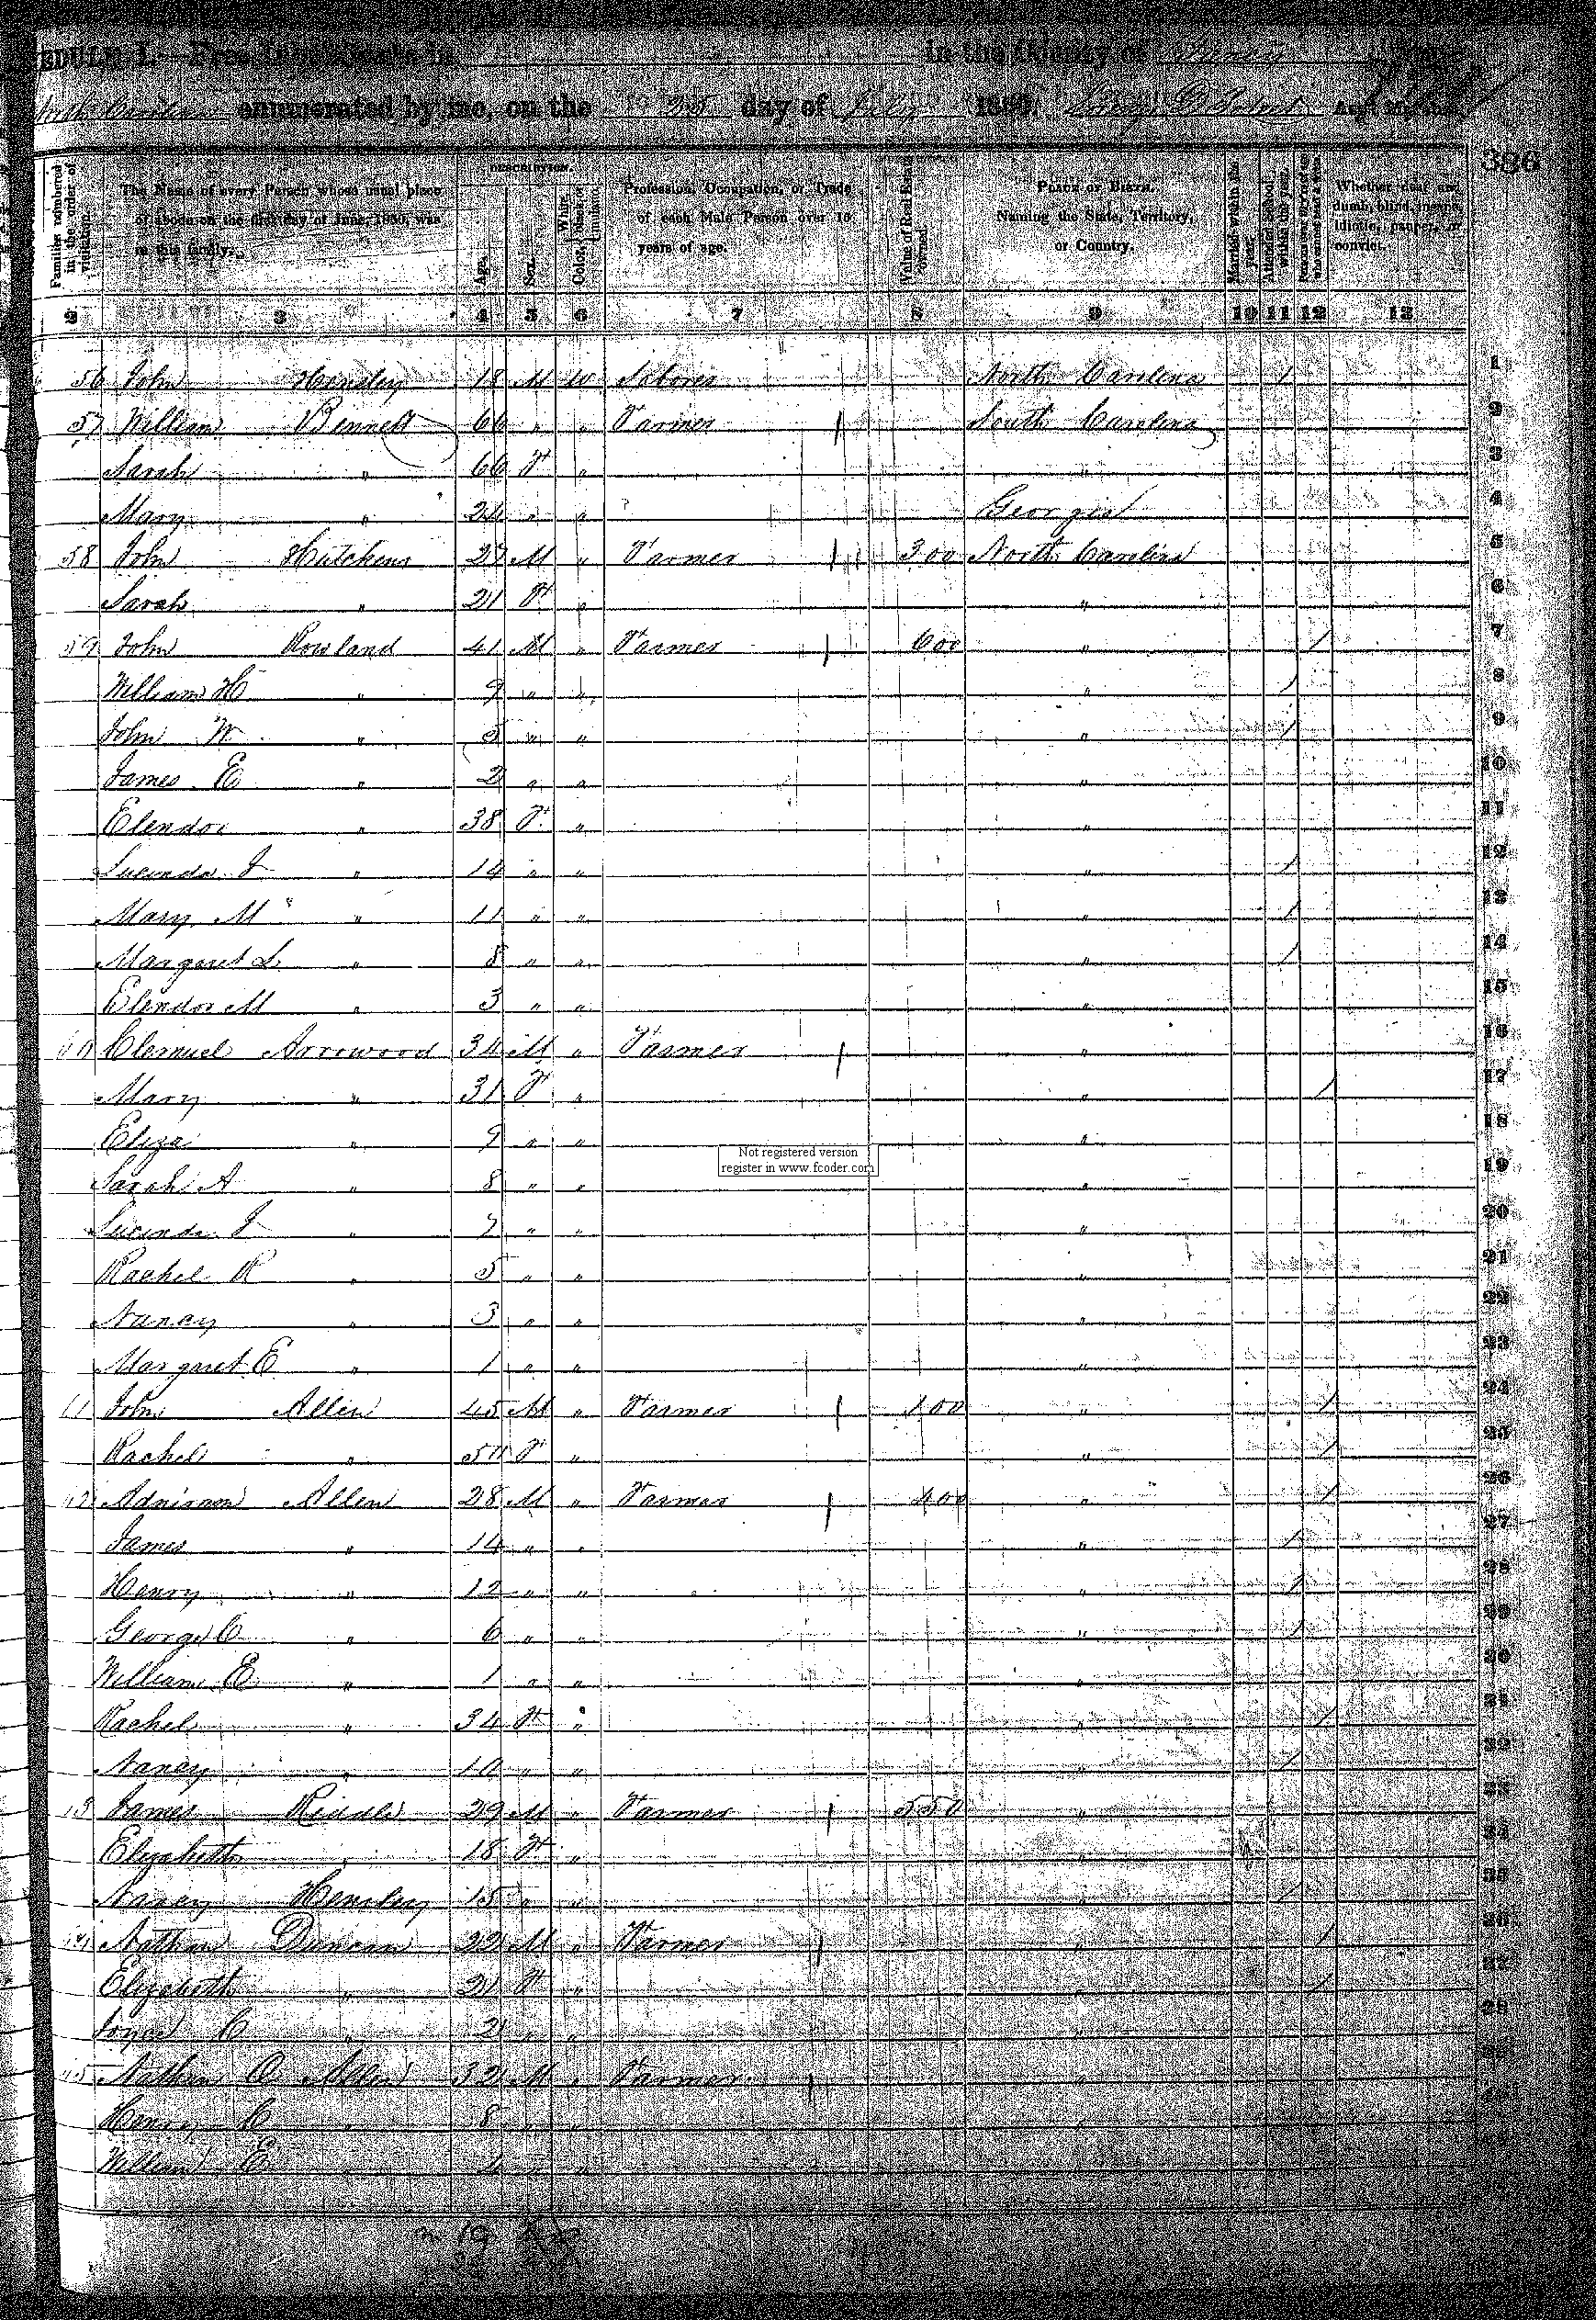 EDULE I.—Free Inhabitants in in the County of Yancy
North Carolina enumerated by me, on the 25 day of July 1850.
386
Families numbered in the order of visitation.
The Name of every Person whose usual place of abode on the first day of June, 1850, was in this family.
DESCRIPTION.
Age. Sex. Color, White, black, or mulatto.
Profession, Occupation, or Trade of each Male Person over 15 years of age.
Value of Real Estate owned.
PLACE OF BIRTH. Naming the State, Territory, or Country.
Married within the year. Attended School within the year.
Whether deaf and dumb, blind, insane, idiotic, pauper, or convict.
2 3 4 5 6 7 9 10 11 12 13
56 John Hensley 18 M W Laborer North Carolina / 1
57 William Bennett 66 " " Farmer South Carolina 2
Sarah " 66 F " " 3
Mary " 24 " " Georgia 4
58 John Hutchens 27 M " Farmer 300 North Carolina 5
Sarah " 21 F " " 6
59 John Rowland 41 M " Farmer 600 " / 7
William H " 9 " " " / 8
John W " 5 " " " / 9
James E " 2 " " " 10
Elendor " 38 F " " 11
Lucinda J " 14 " " " / 12
Mary M " 11 " " " / 13
Margaret L " 8 " " " / 14
Elendor M " 3 " " " 15
60 Clemuel Arrowood 34 M " Farmer " 16
Mary " 31 F " " / 17
Eliza " 9 " " " 18
Not registered version
register in www.fcoder.com
Sarah A " 8 " " " 19
Lucinda J " 7 " " " 20
Rachel R " 5 " " " 21
Nancy " 3 " " " 22
Margaret E " 1 " " " 23
61 John Allen 45 M " Farmer 100 " / 24
Rachel " F " " / 25
Adniram Allen 28 M " Farmer 400 " / 26
James " 14 " " " / 27
Henry " 12 " " " / 28
George C " 6 " " " / 29
William E " 1 " " " 30
Rachel " 34 F " " / 31
Nancy " 10 " " " / 32
James Riddle 29 M " Farmer 550 " 33
Elizabeth " 18 F " " 34
Nancy Hensley 15 " " " / 35
Nathan Duncan 22 M " Farmer " / 36
Elizabeth " 21 F " " / 37
Joyce C " 2 " " " 38
Nathan O Allen 32 M " Farmer "
Henry C " 8 " " "
William E " 4 " " "